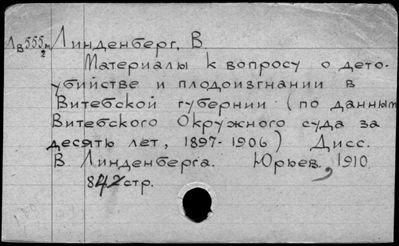 Лв555м/2 Линденберг, В.
Материалы к вопросу о дето-
убийстве и плодоизгнании в
Витебской губернии (по данным
Витебского Окружного суда за
десять лет, 1897-1906) Дисс.
В. Линденберга. Юрьев, 1910
842 стр.